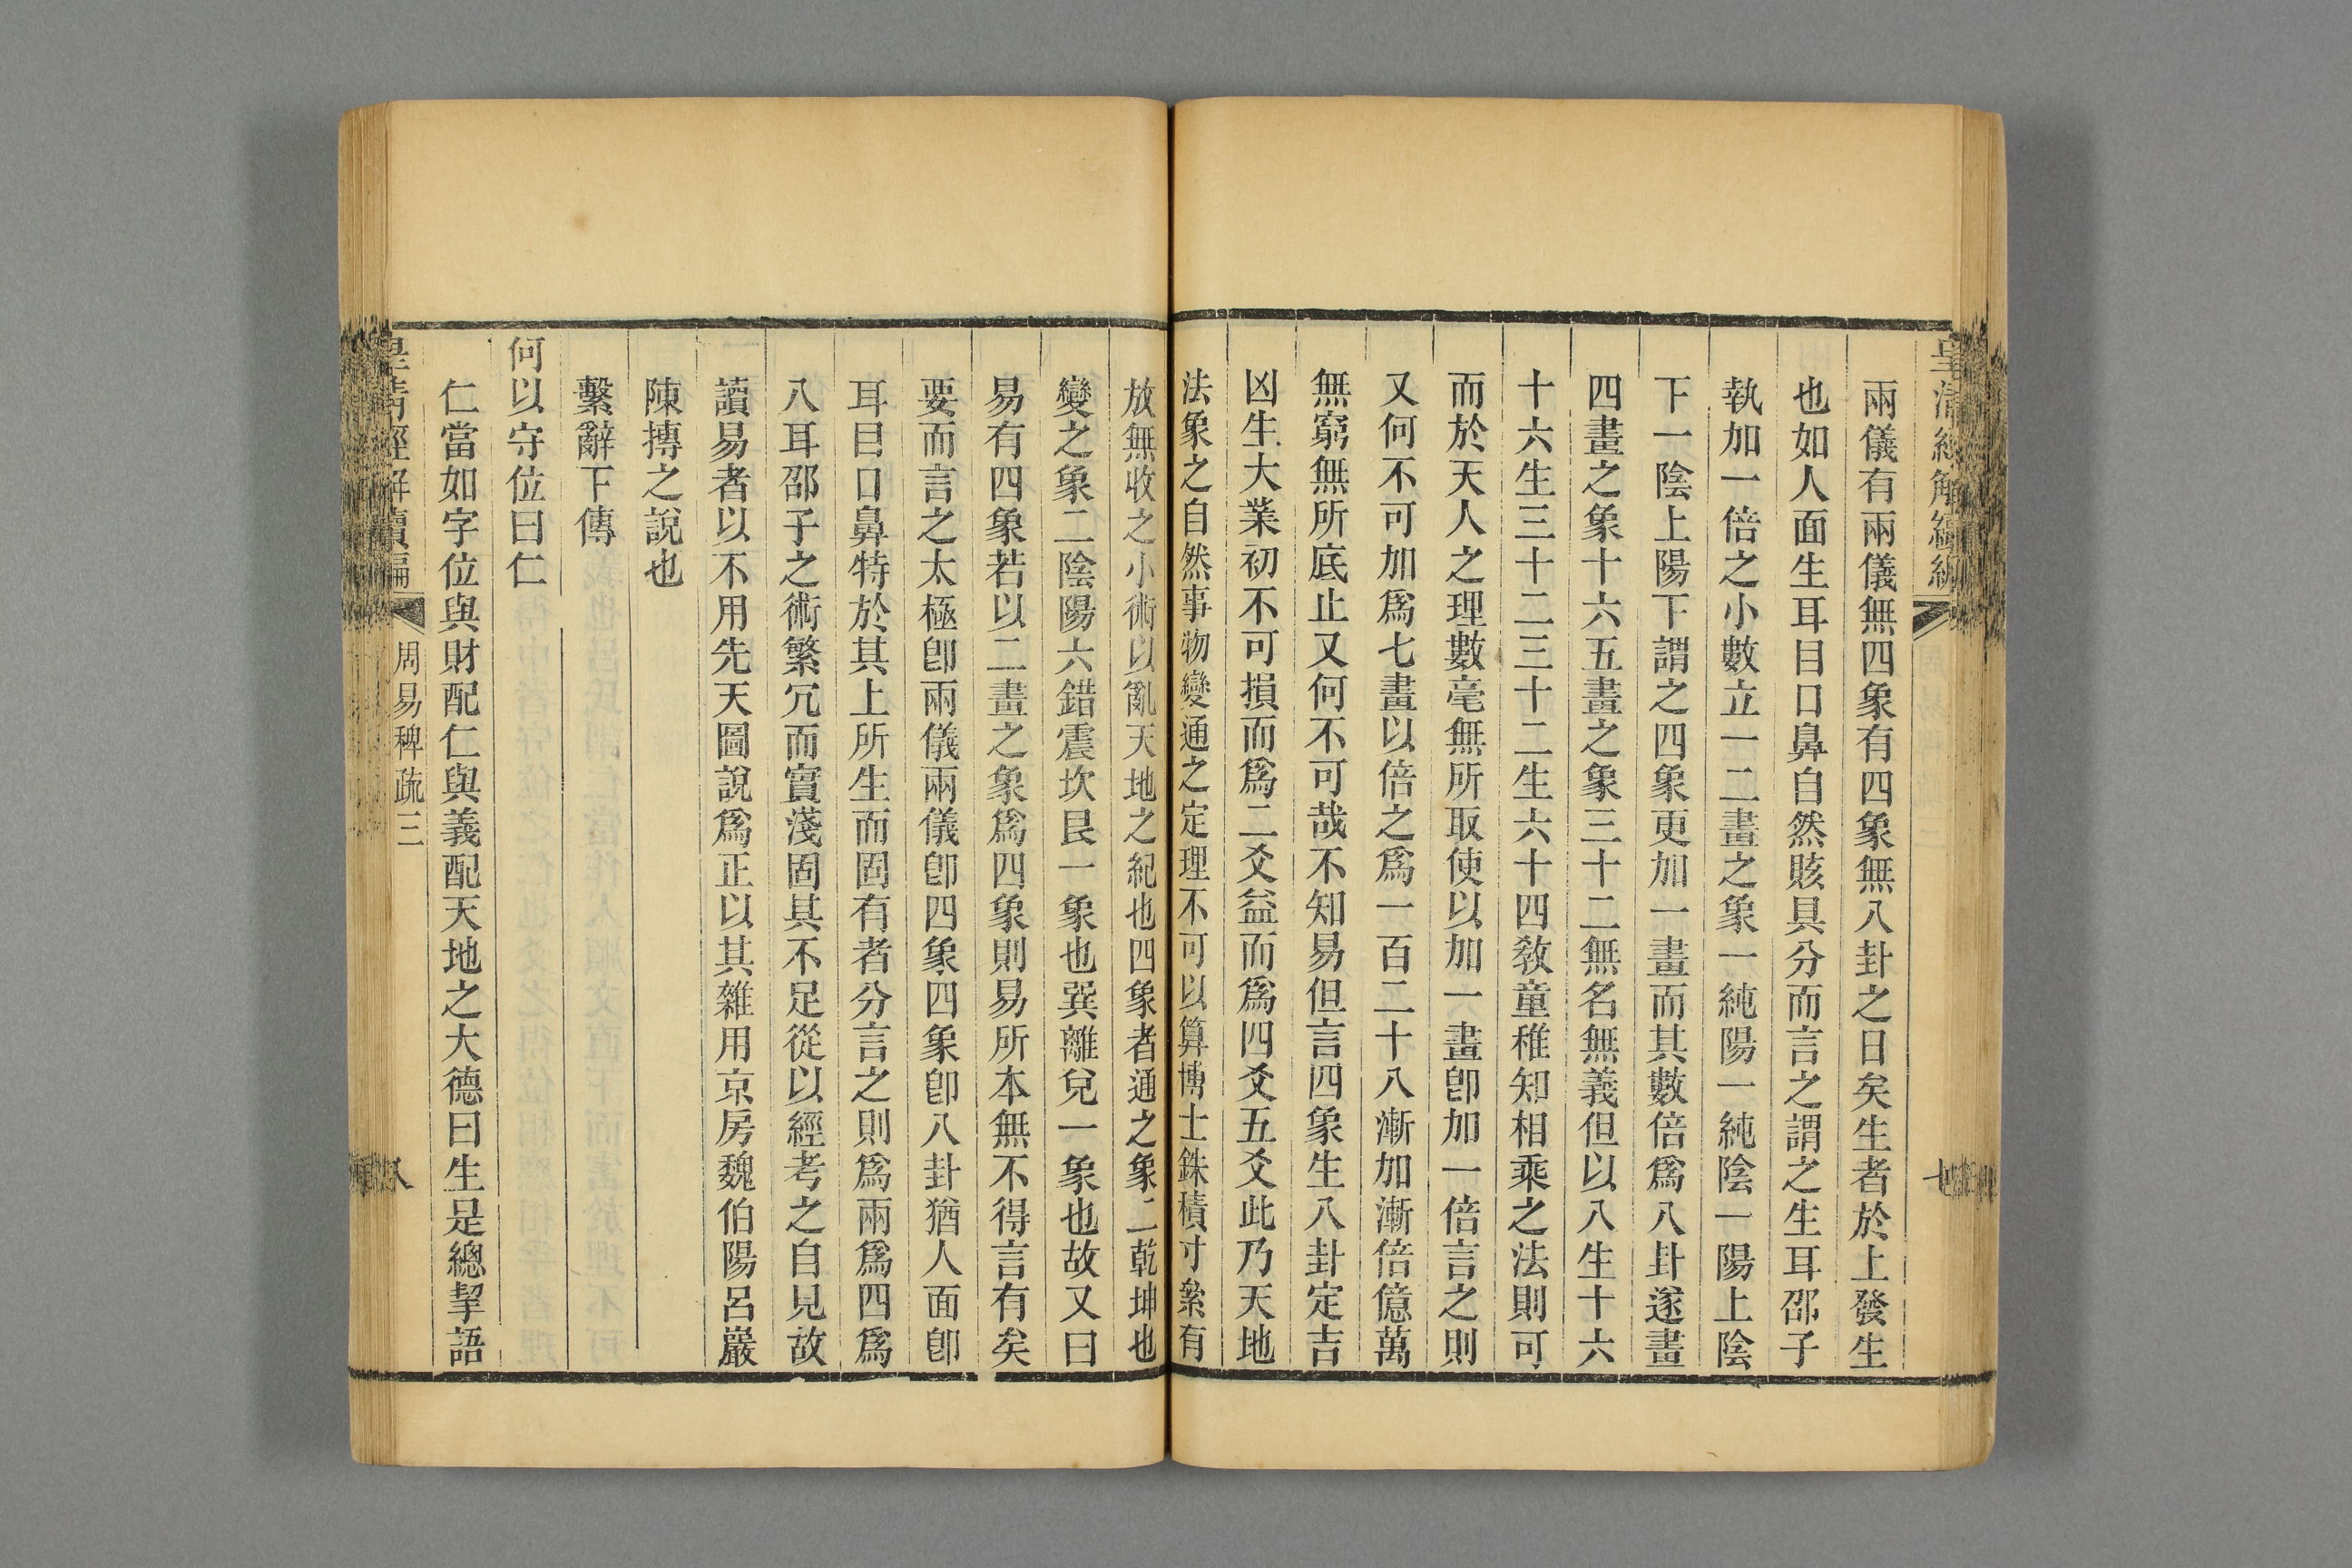 皇清經解續編
七
兩儀有兩儀無四象有四象無八卦之日矣生者於上發生
也如人面生耳目口鼻自然賅具分而言之謂之生耳邵子
執加一倍之小數立一二畫之象一純陽一純陰一陽上陰
下一陰上陽下謂之四象更加一畫而其數倍爲八卦遂畫
四畫之象十六五畫之象三十二無名無義但以八生十六
十六生三十二三十二生六十四敎童稚知相乘之法則可
而於天人之理數毫無所取使以加一畫卽加一倍言之則
又何不可加爲七畫以倍之爲一百二十八漸加漸倍億萬
無窮無所底止又何不可哉不知易但言四象生八卦定吉
凶生大業初不可損而爲二爻益而爲四爻五爻此乃天地
法象之自然事物變通之定理不可以算博士銖積寸絫有
放無收之小術以亂天地之紀也四象者通之象二乾坤也
變之象二陰陽六錯震坎艮一象也巽離兌一象也故又曰
易有四象若以二畫之象爲四象則易所本無不得言有矣
要而言之太極卽兩儀兩儀卽四象四象卽八卦猶人面卽
耳目口鼻特於其上所生而固有者分言之則爲兩爲四爲
八耳邵子之術繁冗而實淺固其不足從以經考之自見故
讀易者以不用先天圖說爲正以其雜用京房魏伯陽呂巖
陳摶之說也
繫辭下傳
何以守位曰仁
仁當如字位與財配仁與義配天地之大德曰生足總挈語
皇清經解續編
周易稗疏三
八